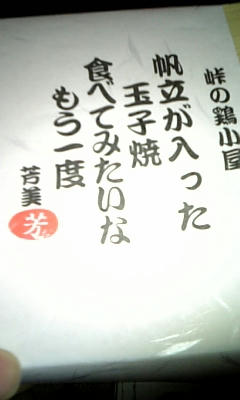 峠の鶏小屋
帆立が入った
玉子焼
食べてみたいな
もう一度
芳美
芳